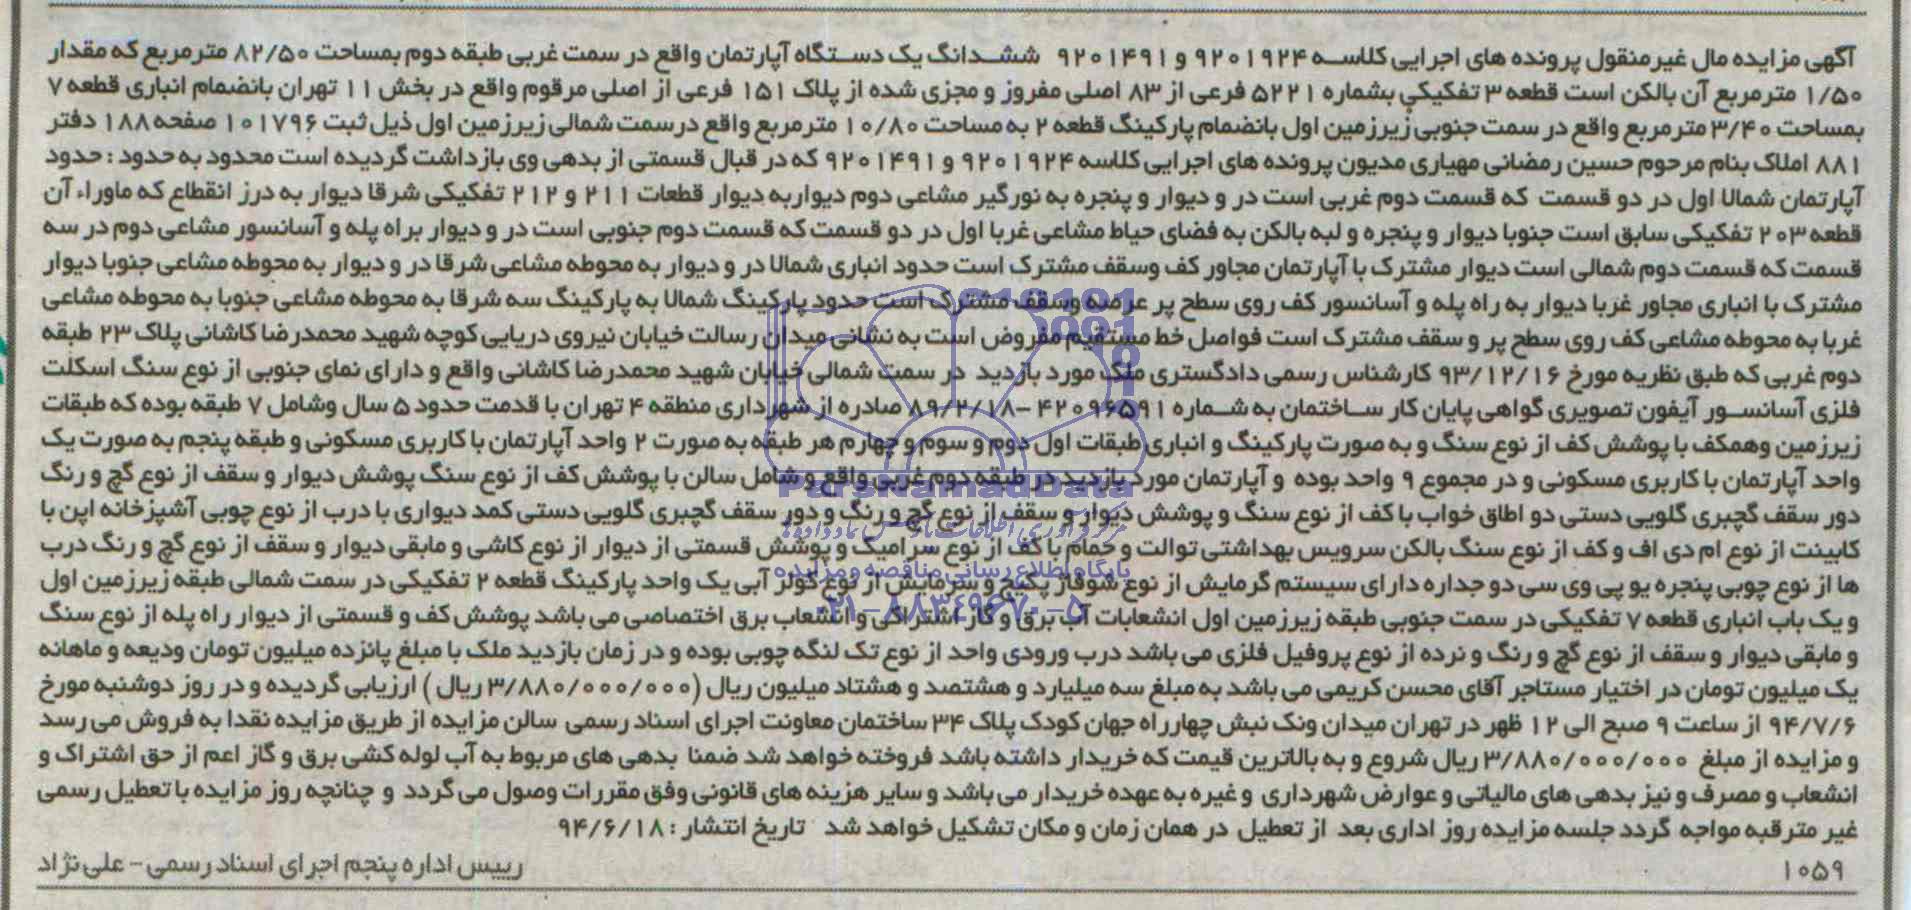 آگهی مزایده مال غیرمنقول پرونده های اجرایی کلاسه ۹۲۰۱۹۲۴ و ۹۲۰۱۴۹۱ ششدانگ یک دستگاه آپارتمان واقع در سمت غربی طبقه دوم بمساحت ۸۲/۵۰ مترمربع که مقدار
۱/۵۰ مترمربع آن بالکن است قطعه ۳ تفکیکی بشماره ۵۲۲۱ فرعی از ۸۳ اصلی مفروز و مجزی شده از پلاک ۱۵۱ فرعی از اصلی مرقوم واقع در بخش ۱۱ تهران بانضمام انباری قطعه ۷
بمساحت ۳/۴۰ مترمربع واقع در سمت جنوبی زیرزمین اول بانضمام پارکینگ قطعه ۲ به مساحت ۱۰/۸۰ مترمربع واقع درسمت شمالی زیرزمین اول ذیل ثبت ۱۰۱۷۹۶ صفحه ۱۸۸ دفتر
۸۸۱ املاک بنام مرحوم حسین رمضانی مهیاری مدیون پرونده های اجرایی کلاسه ۹۲۰۱۹۲۴ و ۹۲۰۱۴۹۱ که در قبال قسمتی از بدهی وی بازداشت گردیده است محدود به حدود : حدود
آپارتمان شمالا اول در دو قسمت که قسمت دوم غربی است در و دیوار و پنجره به نورگیر مشاعی دوم دیواربه دیوار قطعات ۲۱۱ و ۲۱۲ تفکیکی شرقا دیوار به درز انقطاع که ماوراء آن
قطعه ۲۰۳ تفکیکی سابق است جنوبا دیوار و پنجره و لبه بالکن به فضای حیاط مشاعی غربا اول در دو قسمت که قسمت دوم جنوبی است در و دیوار براه پله و آسانسور مشاعی دوم در سه
قسمت که قسمت دوم شمالی است دیوار مشترک با آپارتمان مجاور کف وسقف مشترک است حدود انباری شمالا در و دیوار به محوطه مشاعی شرقا در و دیوار به محوطه مشاعی جنوبا دیوار
مشترک با انباری مجاور غربا دیوار به راه پله و آسانسور کف روی سطح پر عرصه وسقف مشترک است حدود پارکینگ شمالا به پارکینگ سه شرقا به محوطه مشاعی جنوبا به محوطه مشاعی
غربا به محوطه مشاعی کف روی سطح پر و سقف مشترک است فواصل خط مستقیم مفروض است به نشانی میدان رسالت خیابان نیروی دریایی کوچه شهید محمدرضا کاشانی پلاک ۲۳ طبقه
دوم غربی که طبق نظریه مورخ ۹۳/۱۲/۱۶ کارشناس رسمی دادگستری ملک مورد بازدید در سمت شمالی خیابان شهید محمدرضا کاشانی واقع و دارای نمای جنوبی از نوع سنگ اسکلت
فلزی آسانسور آیفون تصویری گواهی پایان کار ساختمان به شماره ۴۲۰۹۶۵۹۱ -۸۹/۲/۱۸ صادره از شهرداری منطقه ۴ تهران با قدمت حدود ۵ سال وشامل ۷ طبقه بوده که طبقات
زیرزمین وهمکف با پوشش کف از نوع سنگ و به صورت پارکینگ و انباری طبقات اول دوم و سوم و چهارم هر طبقه به صورت ۲ واحد آپارتمان با کاربری مسکونی و طبقه پنجم به صورت یک
واحد آپارتمان با کاربری مسکونی و در مجموع ۹ واحد بوده و آپارتمان مورد بازدید در طبقه دوم غربی واقع و شامل سالن با پوشش کف از نوع سنگ پوشش دیوار و سقف از نوع گچ و رنگ
دور سقف گچبری گلویی دستی دو اطاق خواب با کف از نوع سنگ و پوشش دیوار و سقف از نوع گچ و رنگ و دور سقف گچبری گلویی دستی کمد دیواری با درب از نوع چوبی آشپزخانه اپن با
کابینت از نوع ام دی اف و کف از نوع سنگ بالکن سرویس بهداشتی توالت و حمام با کف از نوع سرامیک و پوشش قسمتی از دیوار از نوع کاشی و مابقی دیوار و سقف از نوع گچ و رنگ درب
ها از نوع چوبی پنجره یو پی وی سی دو جداره دارای سیستم گرمایش از نوع شوفاژ پکیج و سرمایش از نوع کولر آبی یک واحد پارکینگ قطعه ۲ تفکیکی در سمت شمالی طبقه زیرزمین اول
و یک باب انباری قطعه ۷ تفکیکی در سمت جنوبی طبقه زیرزمین اول انشعابات آب برق و گاز اشتراکی و انشعاب برق اختصاصی می باشد پوشش کف و قسمتی از دیوار راه پله از نوع سنگ
و مابقی دیوار و سقف از نوع گچ و رنگ و نرده از نوع پروفیل فلزی می باشد درب ورودی واحد از نوع تک لنگه چوبی بوده و در زمان بازدید ملک با مبلغ پانزده میلیون تومان ودیعه و ماهانه
یک میلیون تومان در اختیار مستاجر آقای محسن کریمی می باشد به مبلغ سه میلیارد و هشتصد و هشتاد میلیون ریال (۳/۸۸۰/۰۰۰/۰۰۰ ریال ) ارزیابی گردیده و در روز دوشنبه مورخ
۹۴/۷/۶ از ساعت ۹ صبح الی ۱۲ ظهر در تهران میدان ونک نبش چهارراه جهان کودک پلاک ۳۴ ساختمان معاونت اجرای اسناد رسمی سالن مزایده از طریق مزایده نقدا به فروش می رسد
و مزایده از مبلغ ۳/۸۸۰/۰۰۰/۰۰۰ ریال شروع و به بالاترین قیمت که خریدار داشته باشد فروخته خواهد شد ضمنا بدهی های مربوط به آب لوله کشی برق و گاز اعم از حق اشتراک و
انشعاب و مصرف و نیز بدهی های مالیاتی و عوارض شهرداری و غیره به عهده خریدار می باشد و سایر هزینه های قانونی وفق مقررات وصول می گردد و چنانچه روز مزایده با تعطیل رسمی
غیر مترقبه مواجه گردد جلسه مزایده روز اداری بعد از تعطیل در همان زمان و مکان تشکیل خواهد شد تاریخ انتشار : ۹۴/۶/۱۸
۱۰۵۹ رییس اداره پنجم اجرای اسناد رسمی - علی نژاد
ParsNamadData
مرکز فرآوری اطلاعات پارس نماد داده ها
پایگاه اطلاع رسانی مناقصه و مزایده
۰۲۱-۸۸۳۴۹۶۷۰-۵